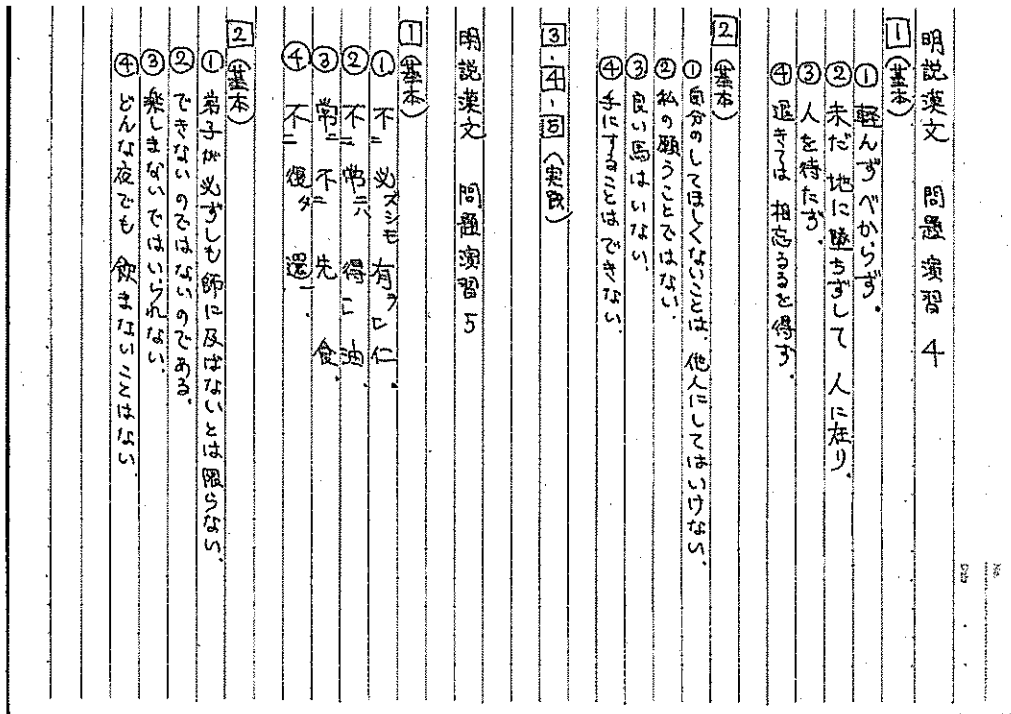 明説漢文 問題演習 4
1 (基本)
① 軽んずべからず。
② 未だ 地に墜ちずして 人に在り。
③ 人を待たず。
④ 退きては 相忘るるを得ず。
2 (基本)
① 自分のしてほしくないことは、他人にしてはいけない。
② 私の願うことではない。
③ 良い馬はいない。
④ 手にすることはできない。
3・4・5 (実践)
明説漢文 問題演習 5
1 (基本)
① 不二 必ズシモ 有ラレ 仁。
② 不二 常ニハ 得レ 油。
③ 常ニ 不二 先 食。
④ 不二 復タ 還一。
2 (基本)
① 弟子が必ずしも師に及ばないとは限らない。
② できないのではないのである。
③ 楽しまないではいられない。
④ どんな夜でも 飲まないことはない。